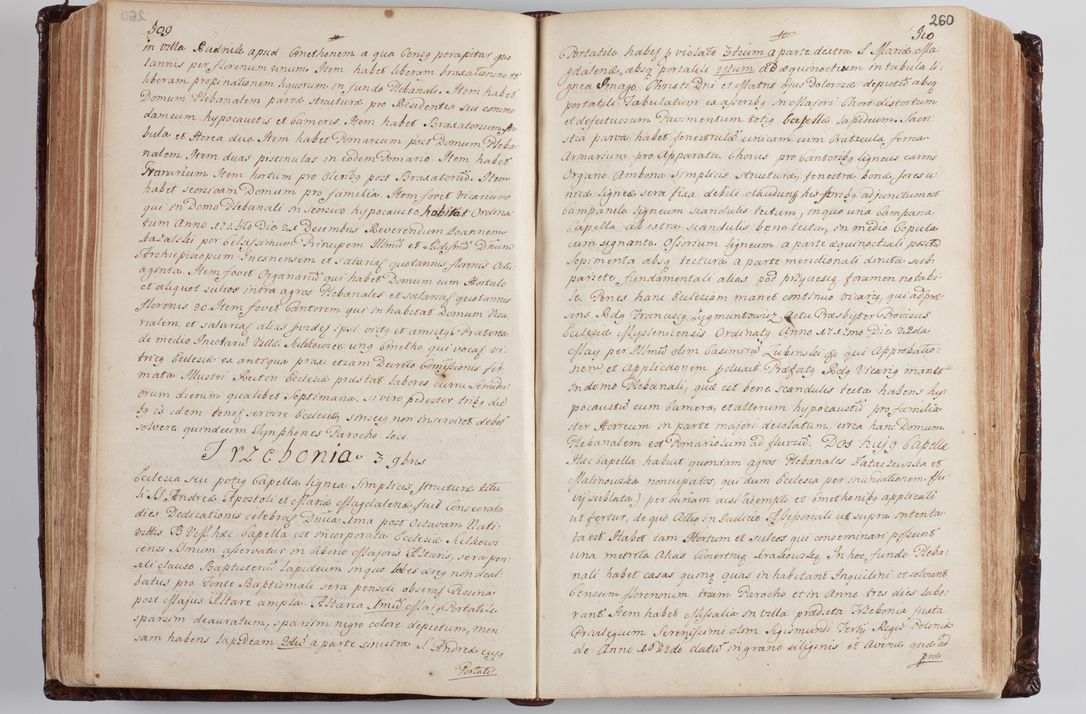 309
in villa Rudnik apud Cmethonem a qua Censg perapitur quo
tannis per florenum unum. Item habet liberam braxationem et
liberam propinationem liquorum in fundo Plebanali. Item habet
Domum Plebanalem parvæ structuræ pro Residentia sui comme
dameum hypocaustis et Camera. Item habet Braxatorium, sta
bula et Horea duo. Item habet Pomarium post Domum Pleba
nalem. Item duas piscinulas in eodem Pomario. Item habet
Granarium Item hortum pro Oleribg post Braxatoriũ. Item
habet seorsivam Domum pro familia. Item fovet Vicarium
qui in Domo Plebanali in seorsivo hypocausto habitat Ordina
tum Anno Die Decembris Reverendum Joannem
per Celsissimum Principem Illmũ et Dñum
Archiepiscopum Gnesnensem et salariat quotannis florenis Octu
aginta. Item fovet Organariũ qui habet Domum cum Hortulo
et aliquot sulcos intra agros Plebanales et salariat quotannis
florenis 20. Item fovet Cantorem qui inhabitat Domum Vica
rialem, et salariat alias
de medio Villæ Sulkowice ung Cmetho qui vocat
Ecclesiæ ex antiqua praxi etiam Decreto Comissionis fir
mata Illustri Rectori Ecclesiæ præstat labores
orum dierum qualibet Septimana. Si vero pedester tribg die
bg is idem tenet servire Ecclesiæ, sin secg non inserviret debet
solvere quindecim Tynphones Parocho loci
Trzebonia 3 gbris
Ecclesia seu potig Capella lignea Simplicis Structuræ titu
li SS. Andreæ Apostoli et Mariæ Magdalenæ fuit Consecrata
dies Dedicationis celebrat Dnica 1ma post Octavam Nati
vittis B. V. Ms. hæc Capella est incorporata Ecclesiæ Sulkowi
censi Smum asservatur in Ciborio Majoris Altaris, sera pen
sili clauso Baptisteriũ lapideum in quo lebes æreg non deal
batus pro Fonte Baptismali sera pensili obserat Piscina
post Majus Altare ampla. Altaria. 1mũ Majg Portatile
sparsim deauratum, sparsim nigro colore depictum, men
sam habens lapideam 2dũ a parte sinistra S. Andreæ cujg
Portati
260
310
Portatile habet g violato 3tium a parte dextra S. Mariæ Ma
gdalenæ absq portatili 4tum ad æquinoctium in tabula li
gnea Imago Christi Dni et Matris Ejus Dolorosæ depictũ absq
portatili. Tabulatum ex asseribg in Majori Choro distortum
et defectuosum Pavimentum totig Capellæ lapideum. Sacri
stia parva habet fenestrulã unicam cum Craticula ferrea
Armarium pro Apparatu. Chorus pro Cantoribg ligneus carens
Organo Ambona Simplicis Structuræ, fenestræ bonæ, fores u
næ ligneæ sera fixa debili clauduntur his foribg adjunctum est
Campanile ligneum scandulis tectum, in quo una Campana
Capella ab extra scandulis bene tecta, in medio Copula
cum signante. Ossorium ligneum a parte æquinoctiali positũ
Sepimenta absq tectura a parte meridionali diruta sub
pariete fundamentali alias pod przyciesią foramen notabi
le. Penes hanc Ecclesiam manet continuo Vicarig, qui ad præ
sens Rdg Francisg Zygmuntowicz actu Præsbyter Provisus
Ecclesiæ Myslenicensis Ordinatg Anno Die 22da
May per Illmũ olim Casimirũ Łubinski &c qui Approbatio
nem et Applicaonem Præfatg Rdg Vicarig manet
in domo Plebanali, quæ est bene scandulis tecta habens hy
pocaustũ cum Camera, et alterum hypocaustũ pro familia
ster Horreum in parte majori desolatum, circa hanc Domum
Plebanalem est Pomariolum ad fluviũ. Dos hujg Capellæ
Hæc Capella habuit quondam agros Plebanales Zataczewska et
Malinowska noncupatos, qui dum Ecclesia per inundationem flu
vij sublata) per Curiam desi adempti et Cmethonibg applicati
ut fertur, de quo Actio in Judicio Assessoriali ut supra intenta
ta est Habet tam Hortum et Sulcos qui conseminari possunt
una metreta alias Ćwiertnią Krakowską. In hoc fundo Pleba
nali habet casas quinq quas inhabitant Inquilini et solvunt
Censum florenorum trium Parocho et in Anno tres dies labo
rant Item habet Missalia in villa prædicta Trzebonia juxta
Privilegium Serenissimi olim Sigismundi Tertij Regis Poloniæ
de Anno datũ in grano siliginis et Avenæ quæ ad
præ